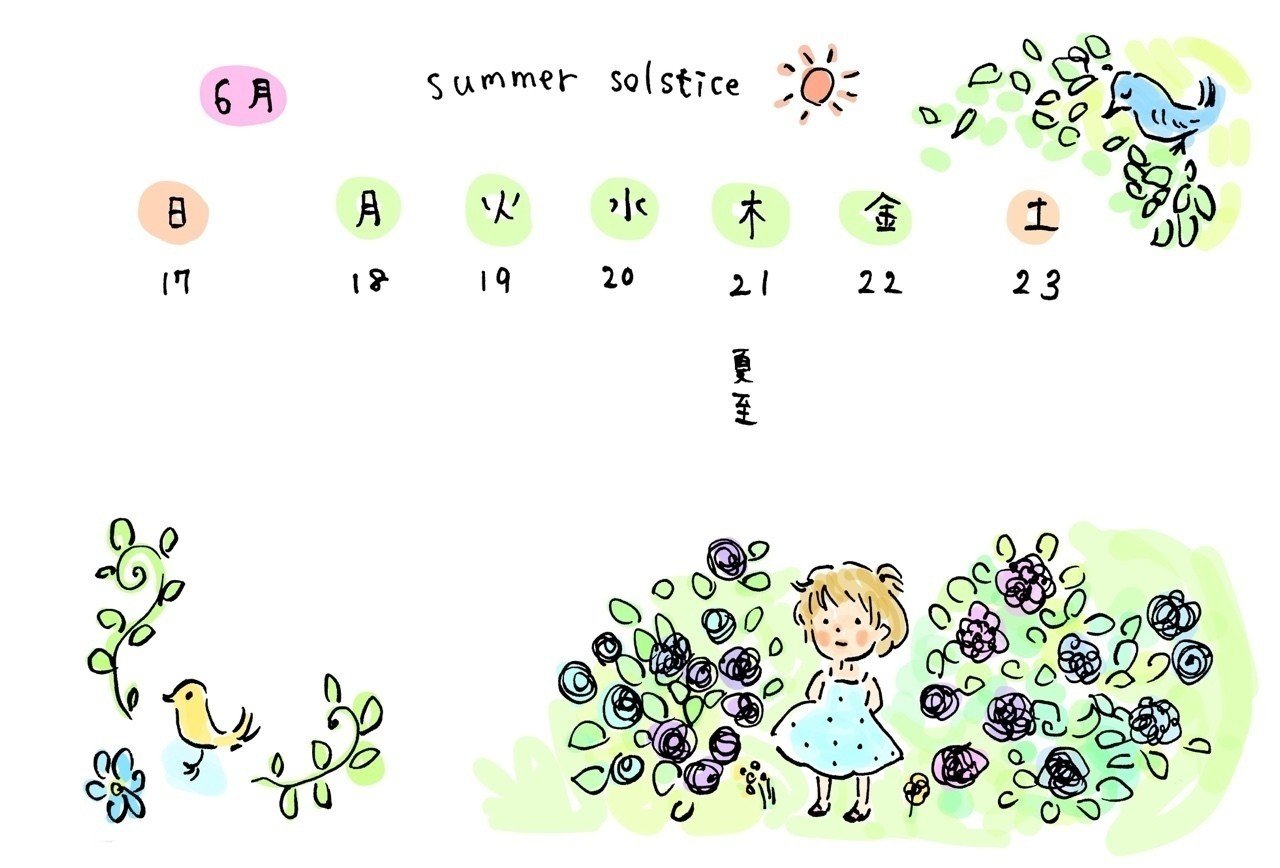 6月 summer solstice
日 月 火 水 木 金 土
17 18 19 20 21 22 23
夏至